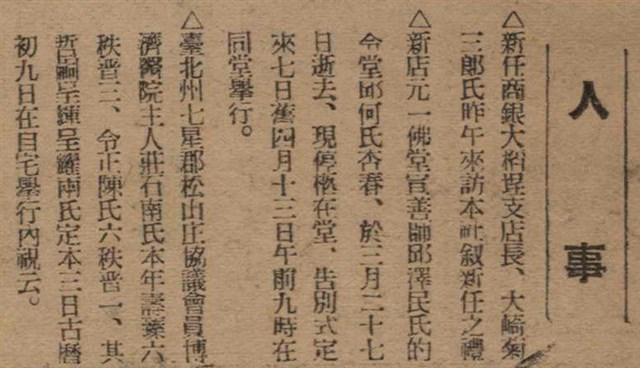 人事
△新任商銀大稻埕支店長、大崎菊
三郎氏昨午來訪本社叙新任之禮
△新店元一佛堂宣善師邱澤民氏的
令堂邱何氏杏春、於三月二十七
日逝去、現停柩在堂、告別式定
來七日舊四月十三日午前九時在
同堂舉行。
△臺北州七星郡松山庄協議會員博
濟醫院主人莊石南氏本年壽臻六
秩晋三、令正陳氏六秩晋一、其
哲嗣呈鍊呈耀兩氏定本三日古曆
初九日在自宅舉行內祝云。